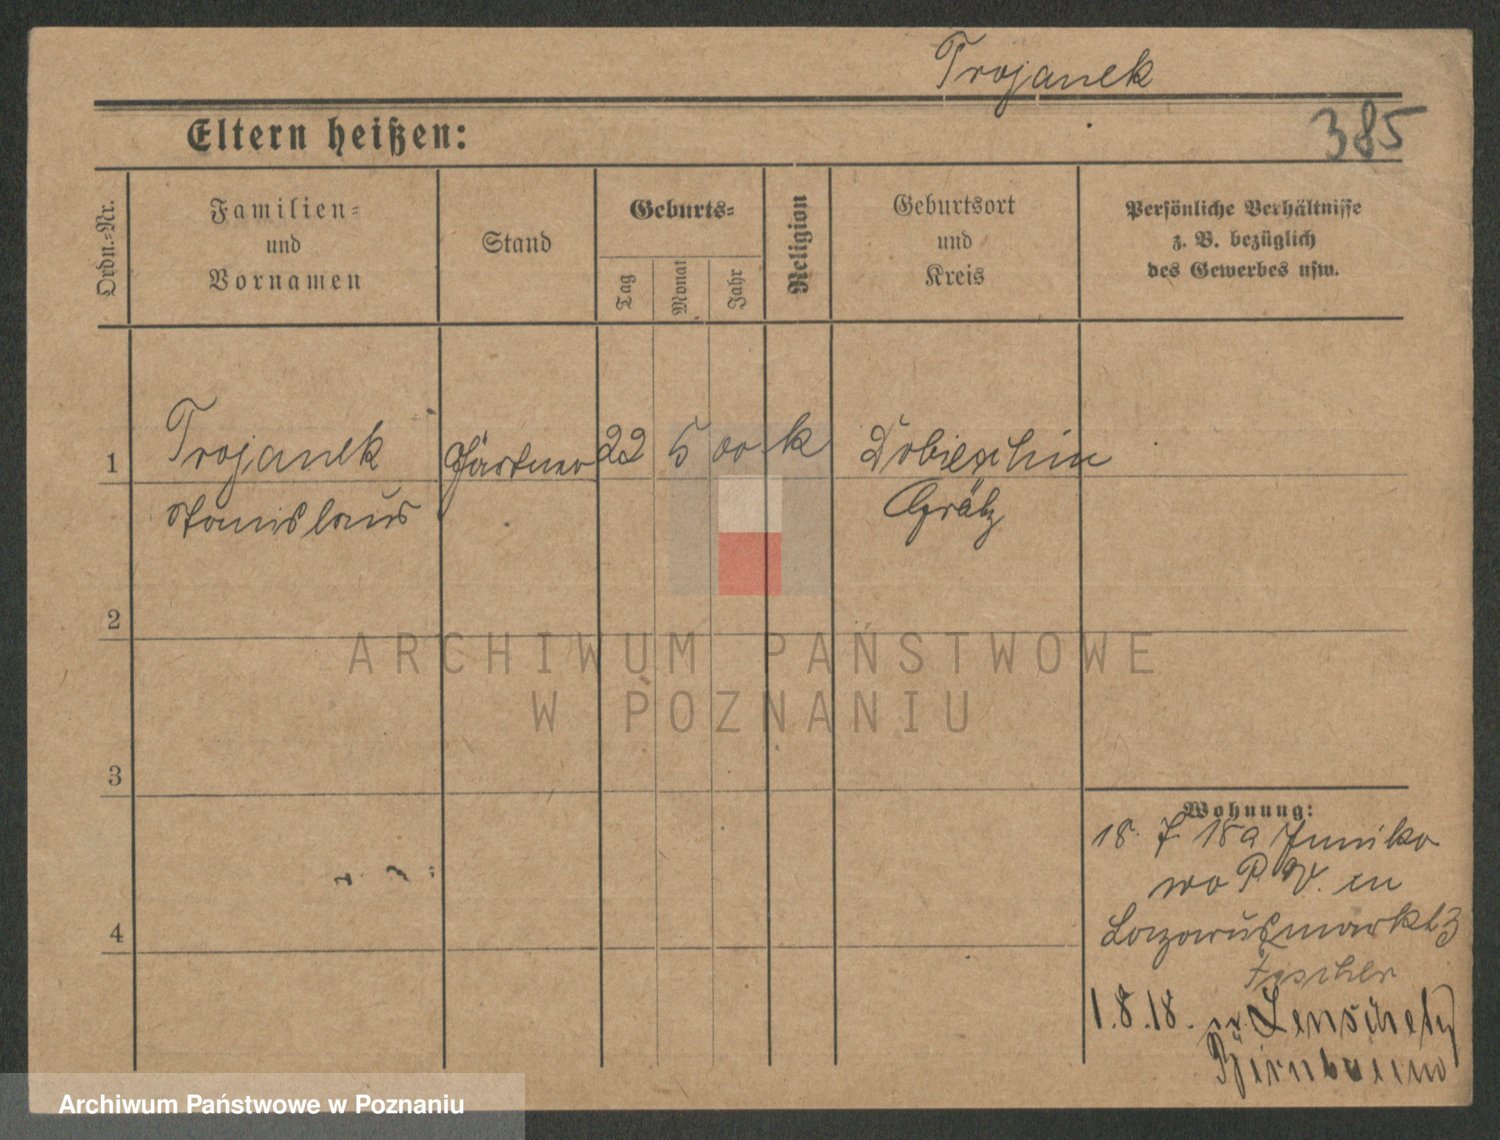 Trojanek
385
Eltern heißen:
Ordn.-Nr.
Familien-
und
Vornamen
Stand
Geburts-
Tag
Monat
Jahr
Religion
Geburtsort
und
Kreis
Persönliche Verhältnisse
z. B. bezüglich
des Gewerbes usw.
1
Trojanek
Stanislaus
Gärtner
22
5
00
k
Dobieschin
Grätz
2
3
4
Wohnung:
18. 7. 18 a Juniko
wo P. V. in
Lazarusmarkt 3
Fischer
1.8.18. n. Lenschetz
Birnbaum
ARCHIWUM PAŃSTWOWE
W POZNANIU
Archiwum Państwowe w Poznaniu